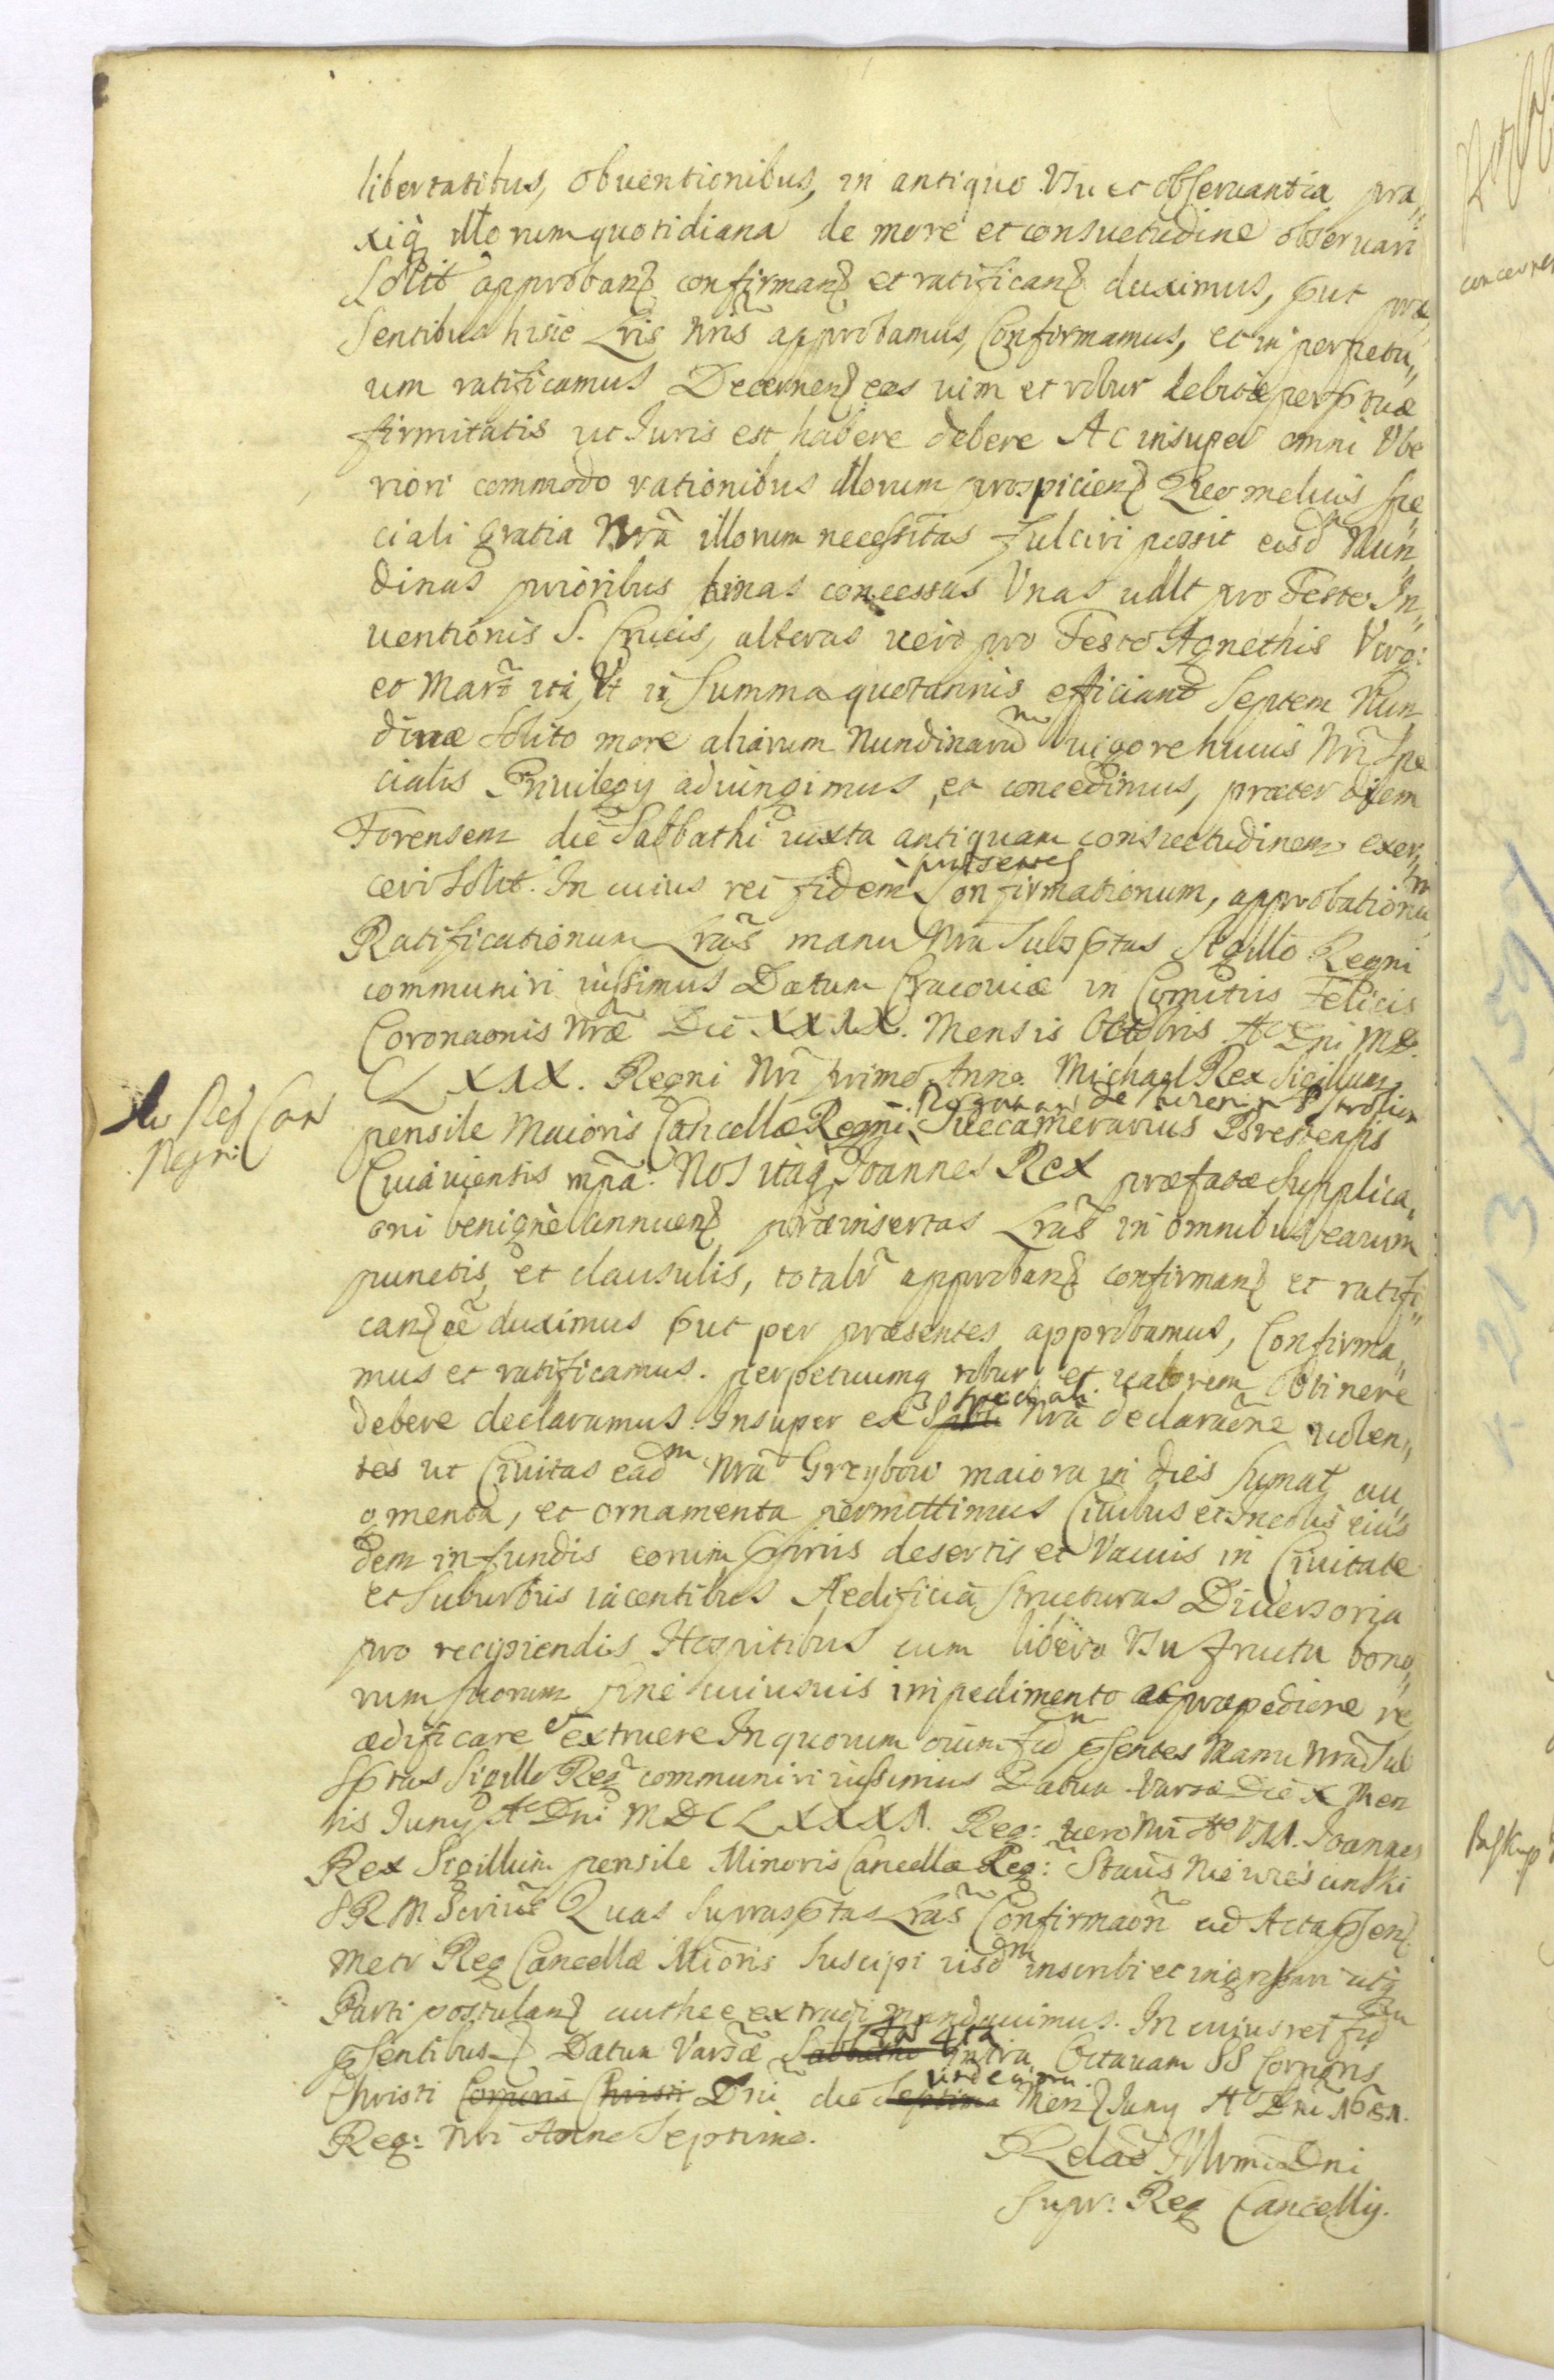 libertatibus, obventionibus, in antiquo Usu et observantia pra„
xiq illorum quotidiana de more et consuetudine observari
Solit approban confirman et ratifican duximus, put præ„
Sentibus hisce Lris Nris approbamus, Confirmamus, et in perpetu„
um ratificamus Decernen eas vim et robur debitæ perptuæ
firmitatis ut Iuris est habere debere Ac insuper omni Vbe
riori commodo rationibus illorum prospicien Quo melius spe„
ciali gratia Nra illorum necessitas fulciri possit eisdm Nun„
dinas prioribus binas concessas Vnas udlt pro Festo In„
uentionis S. Crucis, alteras uero pro Festo Agnethis Virg:
et Mart ita Vt in Summa quotannis efficiant Septem Nun
dinæ Solito more aliarum Nundinarum uigore huius Nri Spe
cialis Priuilegij adiungimus, et concedimus, præter diem
Forensem die Sabbathi iuxta antiquam consuetudinem exer„
ceri Solit. In cuius rei fidem præsentes Confirmationum, approbationum
Ratificationum Lras manu Nra Subsptas Sigillo Regni
communiri iussimus Datum Cracouiæ in Comitiis Felicis
Coronaonis Nræ Die XXIX. Mensis Octobris Ao Dni MD
CLXIX. Regni Nri primo Anno. Michael Rex Sigillum
Mi Rej Can
Regni
pensile Maioris Cancellæ Regni. de Succamerarius Brestensis
Cuiauiensis mpa. Nos itaq Joannes Rex præfatæ Supplica„
oni benignè annuen præinsertas Lras in omnibus earum
punctis, et clausulis, totalr approban confirman et ratifi„
can ee duximus put per præsentes approbamus, Confirma„
mus et ratificamus. perpetuumq robur et ualorem obtinere
debere declaramus. Insuper ex speciali Nra declaraone uolen„
tes ut Ciuitas eadm Nra Grzybow maiora in dies Sumat au„
gmenta, et ornamenta permittimus Ciuibus et Incolis eius
dem in fundis eorum ppriis desertis et Vacuis in Ciuitate
et Suburbiis iacentibus Aedificia Structuras Diuersoria
pro recipiendis Hospitibus cum libero Vsu fructu bono„
rum suorum sine cuiusuis impedimento ac præpedione re
ædificare et extruere In quorum oium fidm psentes Manu Nra Sub
Sptas Sigillo Reg communiri iussimus Datum Varsæ Die X Men
sis Iunij Ao Dni MDCLXXXI. Reg: uero Nri Ao VII. Joannes
Rex Sigillum pensile Minoris Cancellæ Reg: Staus Niewiescinski
SRM Quas Suprasptas Lras Confirmaon ad Acta psen
Metr Reg Cancellæ Mioris Suscipi iisdm inscribi et ingrossari utq
Parti postulan authee extradi mandauimus. In cuius rei fidm
psentibus Datum Varsæ Sabbatho Intra Octauam SS Corporis
Christi Corporis Christi Dni die Septima undecima Men Iunij Ao Dni 1681.
Reg: Nri Anno Septimo.
Relao Illrmi Dni
Supr: Reg Cancellij.